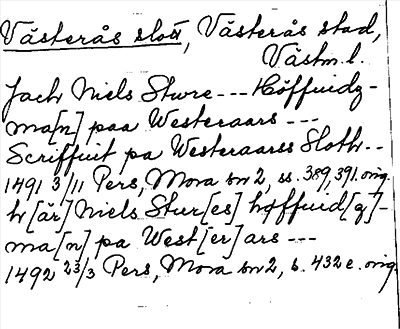 Västerås slott, Västerås stad,
Västm. l.
Jach Niels Sture --- Höffuidz-
ma[n] paa Westeraars ---
Scriffuit pa Westeraarss Sloth --
1491 3/11 Pers, Mora bn 2, ss. 389, 391. orig.
h[är] Niels Stur[es] høffuid[z]-
ma[n] pa West[er]ars ---
1492 23/3 Pers, Mora bn 2, s. 432 e. orig.